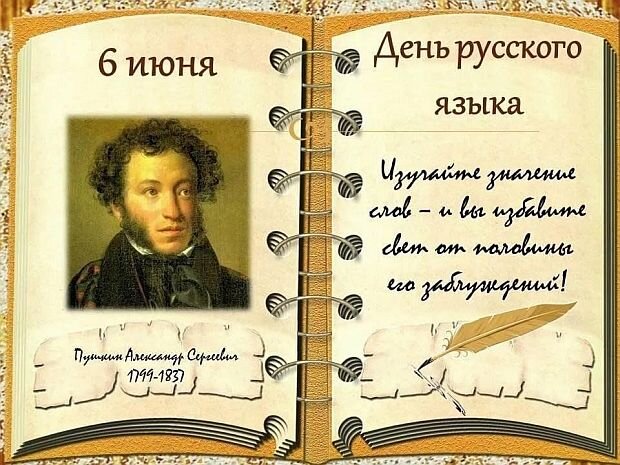 6 июня
Пушкин Александр Сергеевич
1799-1837
День русского
языка
Изучайте значение
слов – и вы избавите
свет от половины
его заблуждений!